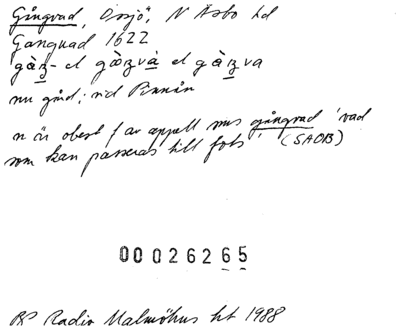 Gångvad, Össjö, N Åsbo hd
Gånguad 1622
gàŋ- el gàŋvà el gàŋva
nu gård; vid Pinnån
n är obest f av appell sms gångvad 'vad
som kan passeras till fots' (SAOB)
00026265
BP Radio Malmöhus ht 1988